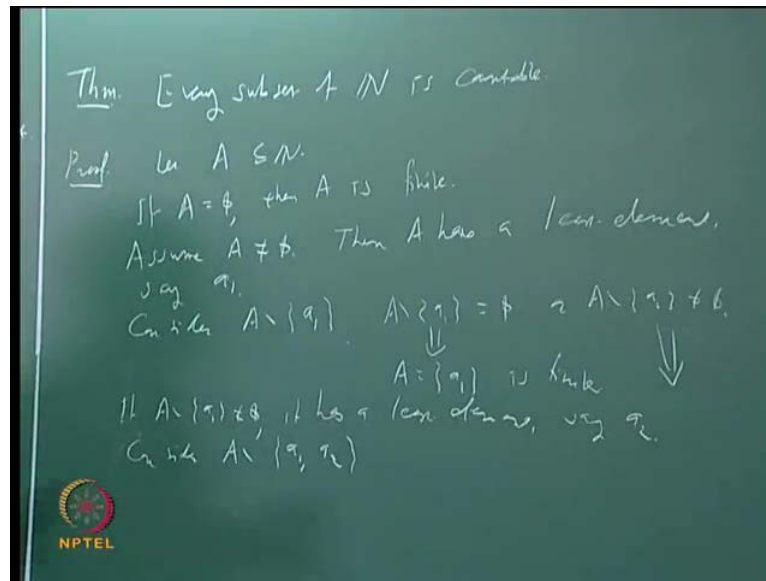 Thm. Every subset of ℕ is Countable.
Proof. Let A ⊆ ℕ.
If A = ϕ, then A is finite.
Assume A ≠ ϕ. Then A has a least element,
say a₁.
Consider A \ {a₁}. A \ {a₁} = ϕ or A \ {a₁} ≠ ϕ.
⇓ ⇓
A = {a₁} is finite
If A \ {a₁} ≠ ϕ, it has a least element, say a₂.
Consider A \ {a₁, a₂}
NPTEL